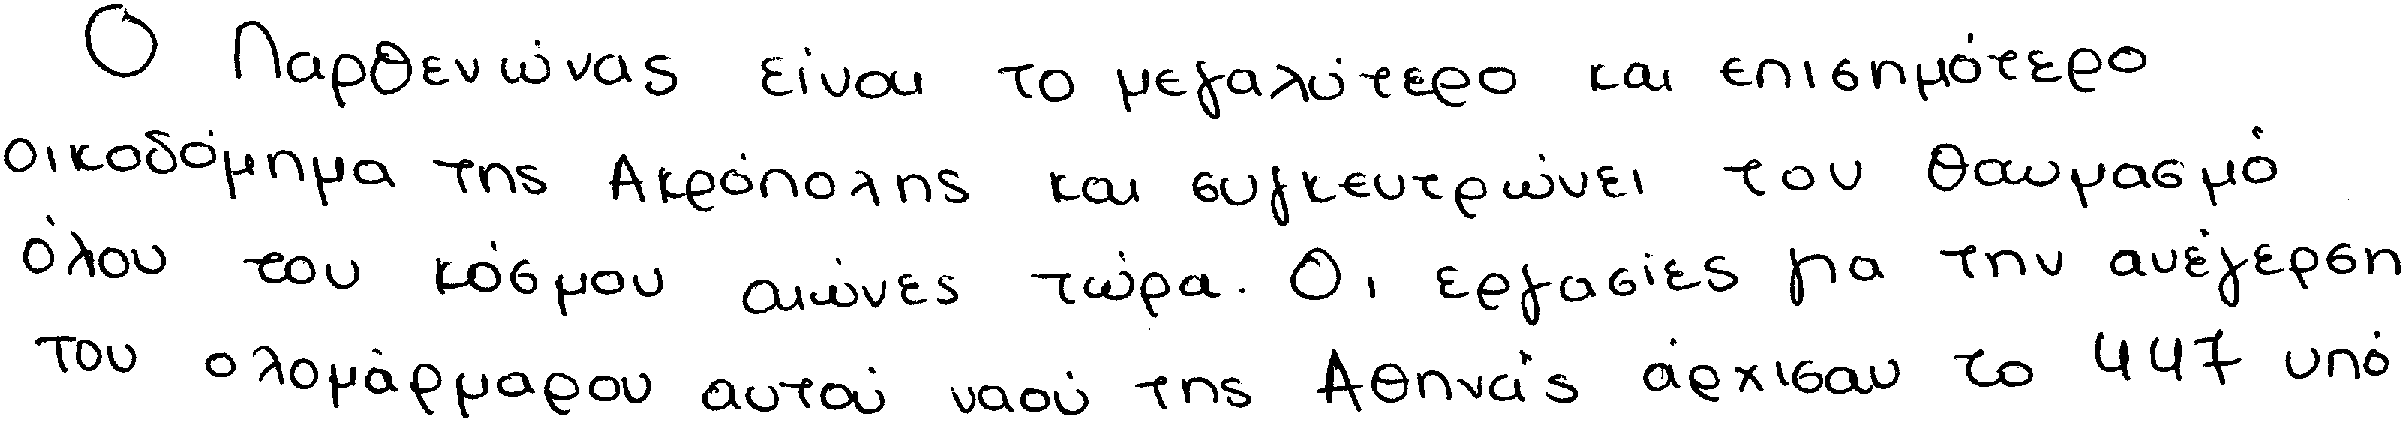 Ο Παρθενώνας είναι το μεγαλύτερο και επισημότερο
οικοδόμημα της Ακρόπολης και συγκεντρώνει τον θαυμασμό
όλου του κόσμου αιώνες τώρα. Οι εργασίες για την ανέγερση
του ολομάρμαρου αυτού ναού της Αθηνάς άρχισαν το 447 υπό